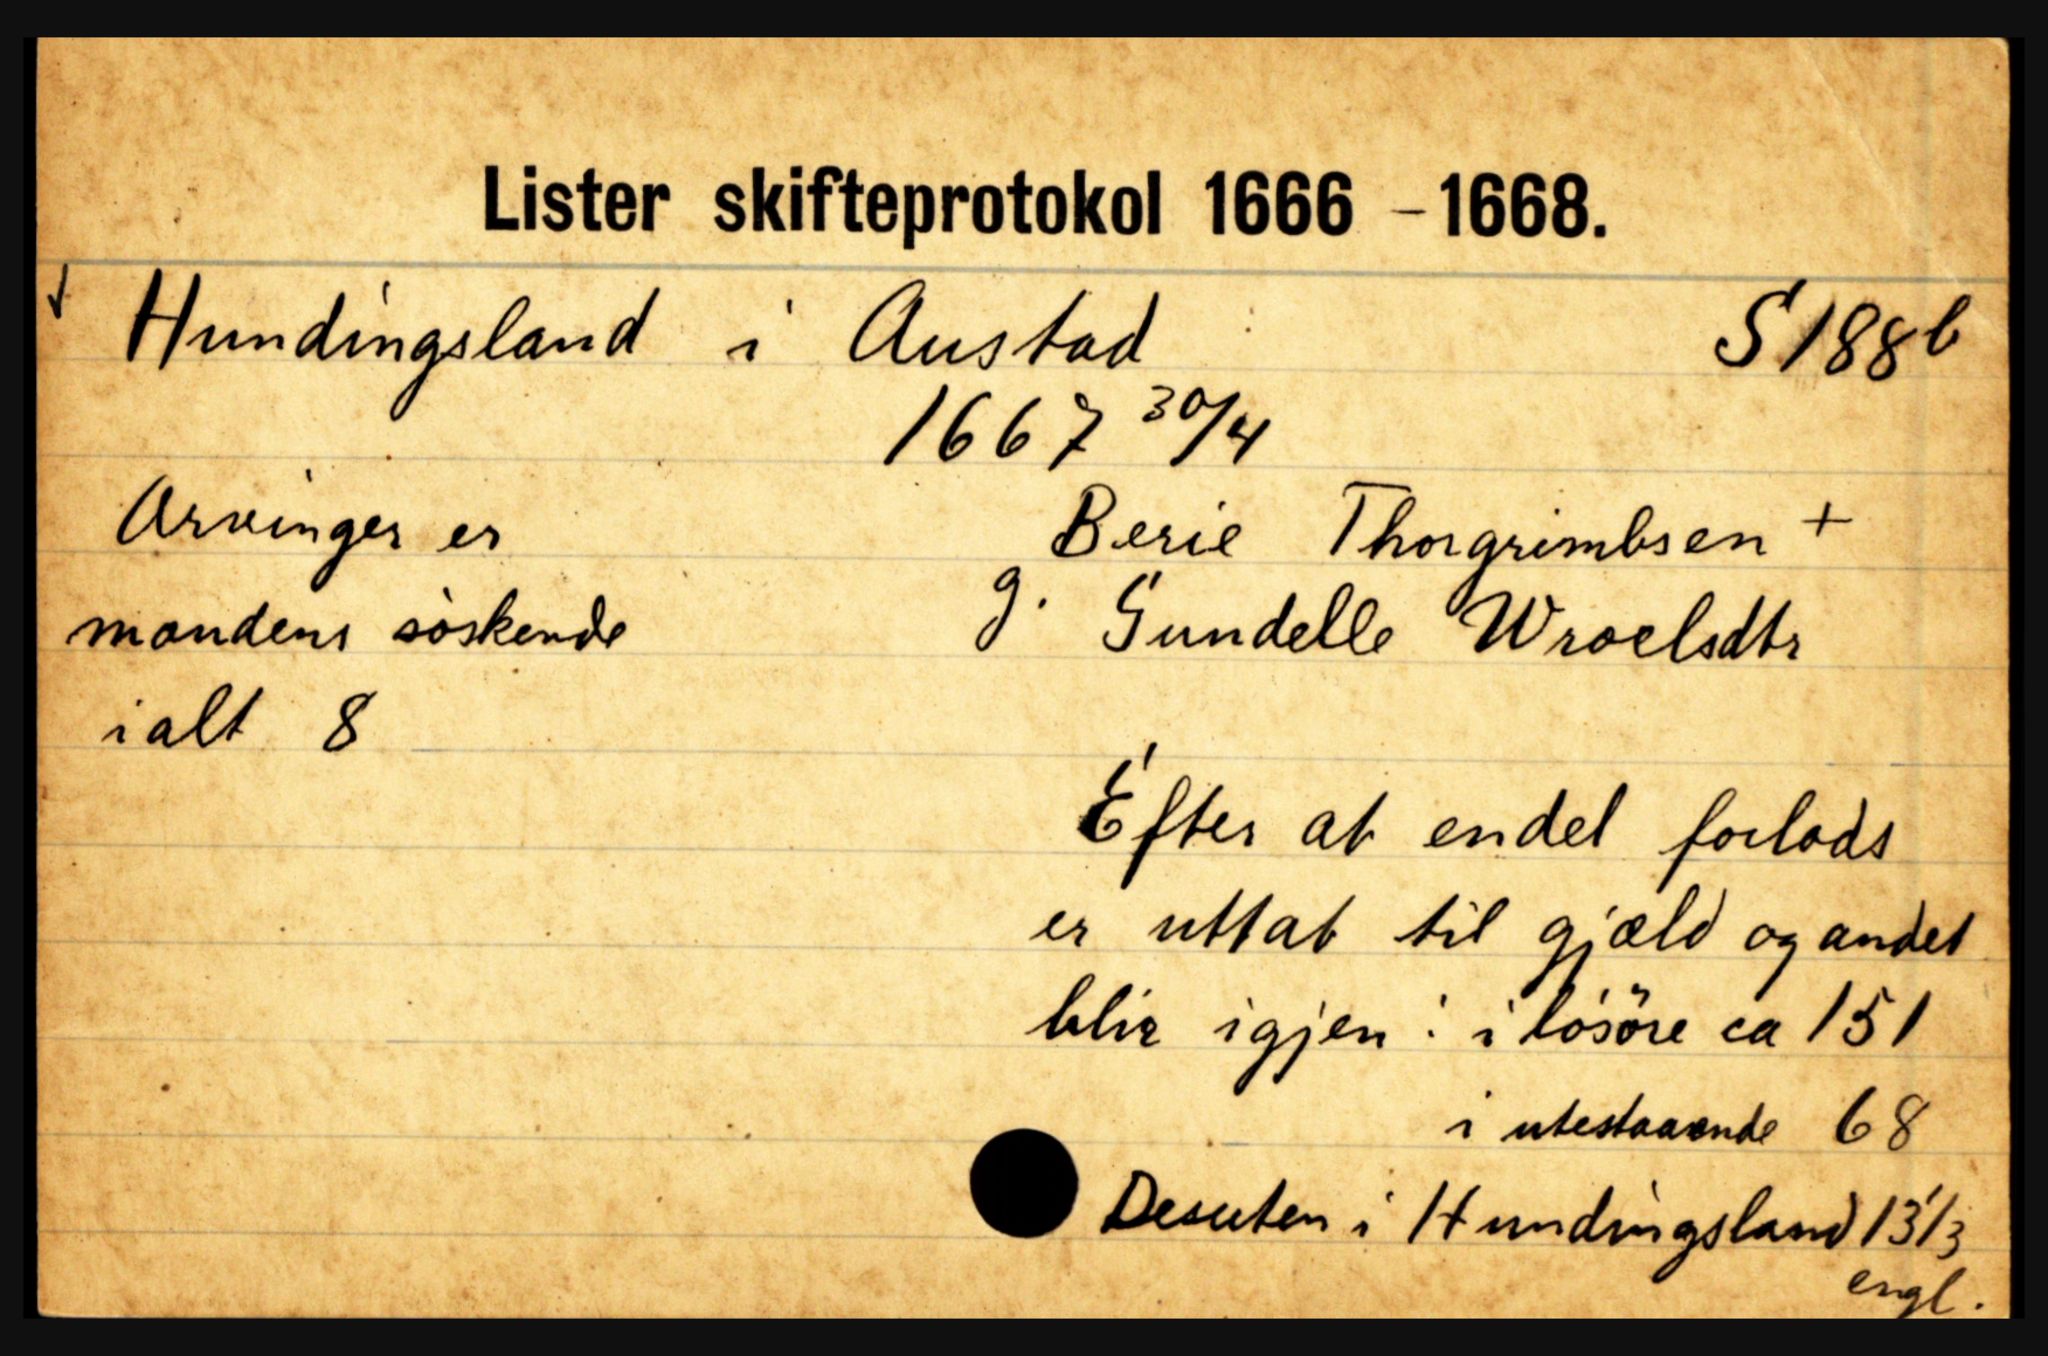 Lister skifteprotokol 1666 - 1668.
Hundingsland i Austad S 188 b
1667 30/4
Arvinger er
mandens søskende
i alt 8
Berie Thorgrimbsen +
g. Gundelle Wroelsdtr
Efter at endel forlods
er uttat til gjæld og andet
blir igjen : i løsöre ca 151
i utestaaende 68
Desuten i Hundingsland 13 1/3
engl.